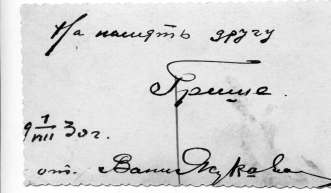 На память другу
Грише.
9 1/VIII 30 г.
от. Вани Жукова